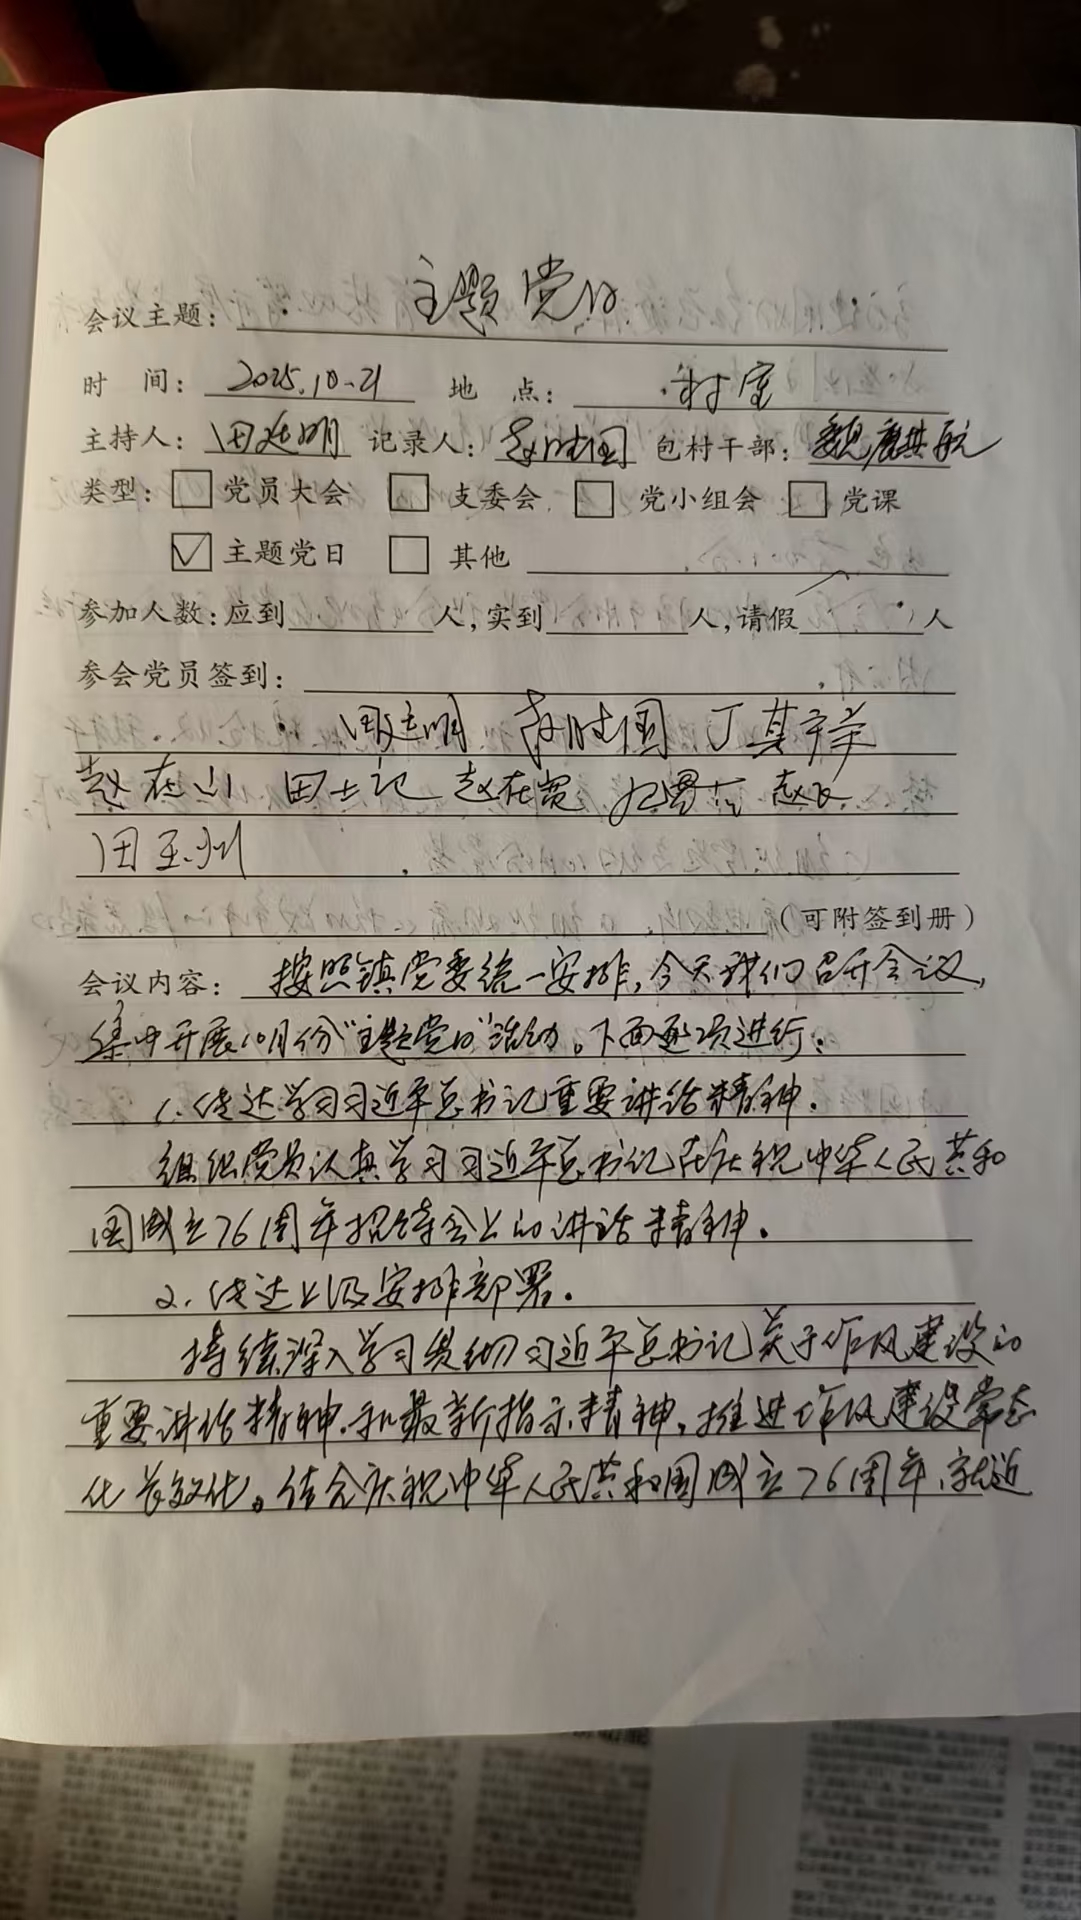 会议主题： 主题党日
时 间： 2025.10-21 地 点： 村室
主持人：田廷明 记录人：赵胜国 包村干部：魏麒航
类型： 党员大会 支委会 党小组会 党课
主题党日 其他
参加人数：应到 人，实到 人，请假 人
参会党员签到：
田廷明 赵胜国 丁其祥
赵在山 田士记 赵在宽 赵
田玉州
（可附签到册）
会议内容： 按照镇党委统一安排，今天我们召开会议，
集中开展10月份“主题党日”活动。下面逐项进行：
1、传达学习习近平总书记重要讲话精神．
组织党员认真学习习近平总书记在庆祝中华人民共和
国成立76周年招待会上的讲话精神。
2、传达上级安排部署。
持续深入学习贯彻习近平总书记关于作风建设的
重要讲话精神．和最新指示精神，推进作风建设常态
化长效化。结合庆祝中华人民共和国成立76周年、就近